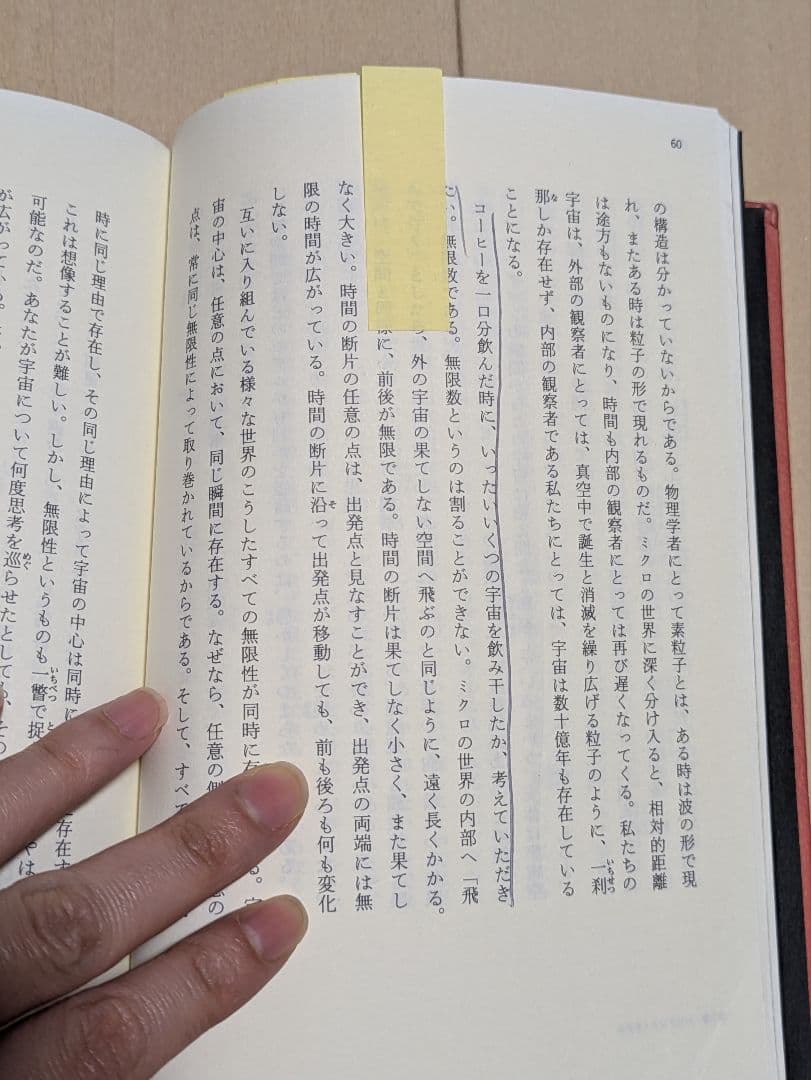 60
の構造は分かっていないからである。物理学者にとって素粒子とは、ある時は波の形で現
れ、またある時は粒子の形で現れるものだ。ミクロの世界に深く分け入ると、相対的距離
は途方もないものになり、時間も内部の観察者にとっては再び遅くなってくる。私たちの
宇宙は、外部の観察者にとっては、真空中で誕生と消滅を繰り広げる粒子のように、一刹
那しか存在せず、内部の観察者である私たちにとっては、宇宙は数十億年も存在している
ことになる。
コーヒーを一口分飲んだ時に、いったいいくつの宇宙を飲み干したか、考えていただき
たい。無限数である。無限数というのは割ることができない。ミクロの世界の内部へ「飛
、外の宇宙の果てしない空間へ飛ぶのと同じように、遠く長くかかる。
に、前後が無限である。時間の断片は果てしなく小さく、また果てし
なく大きい。時間の断片の任意の点は、出発点と見なすことができ、出発点の両端には無
限の時間が広がっている。時間の断片に沿って出発点が移動しても、前も後ろも何も変化
しない。
互いに入り組んでいる様々な世界のこうしたすべての無限性が同時に存
宙の中心は、任意の点において、同じ瞬間に存在する。なぜなら、任意の
点は、常に同じ無限性によって取り巻かれているからである。そして、すべて
時に同じ理由で存在し、その同じ理由によって宇宙の中心は同時に
これは想像することが難しい。しかし、無限性というものも一瞥で捉
可能なのだ。あなたが宇宙について何度思考を巡らせたとしても、その
が広がって